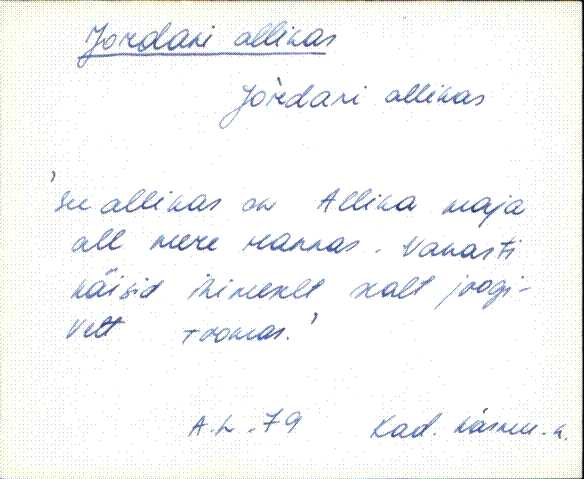 Jordani allikas
Jòrdani allikas
'See allikas on Allika maja
all mere rannas. Vanasti
käisid inimesed sealt joogi-
vett toomas.'
A.L. 79 Kad. Käsmu k.